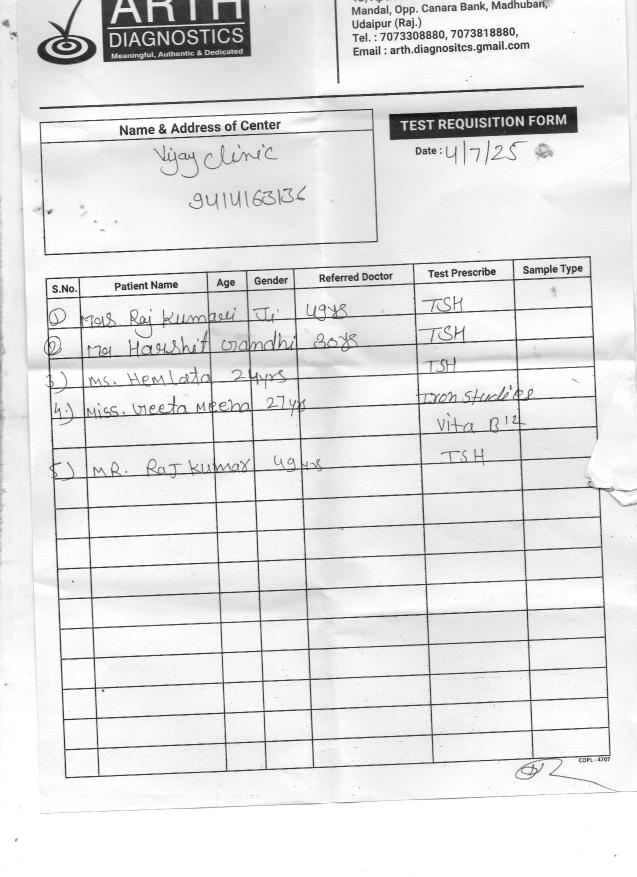 ARTH
DIAGNOSTICS
Meaningful, Authentic & Dedicated
Mandal, Opp. Canara Bank, Madhuban,
Udaipur (Raj.)
Tel. : 7073308880, 7073818880,
Email : arth.diagnositcs.gmail.com
Name & Address of Center
Vijay Clinic
9414163136
TEST REQUISITION FORM
Date : 4/7/25
S.No. Patient Name Age Gender Referred Doctor Test Prescribe Sample Type
1 Mrs. Raj Kumari Ji 49yrs TSH
2 Mr Harshit Gandhi 30yrs TSH
3) Ms. Hemlata 24yrs TSH
4.) Miss. Geeta Meena 27yrs Iron Studies
Vita B12
5) MR. Raj Kumar 49yrs TSH
COPL - 4707